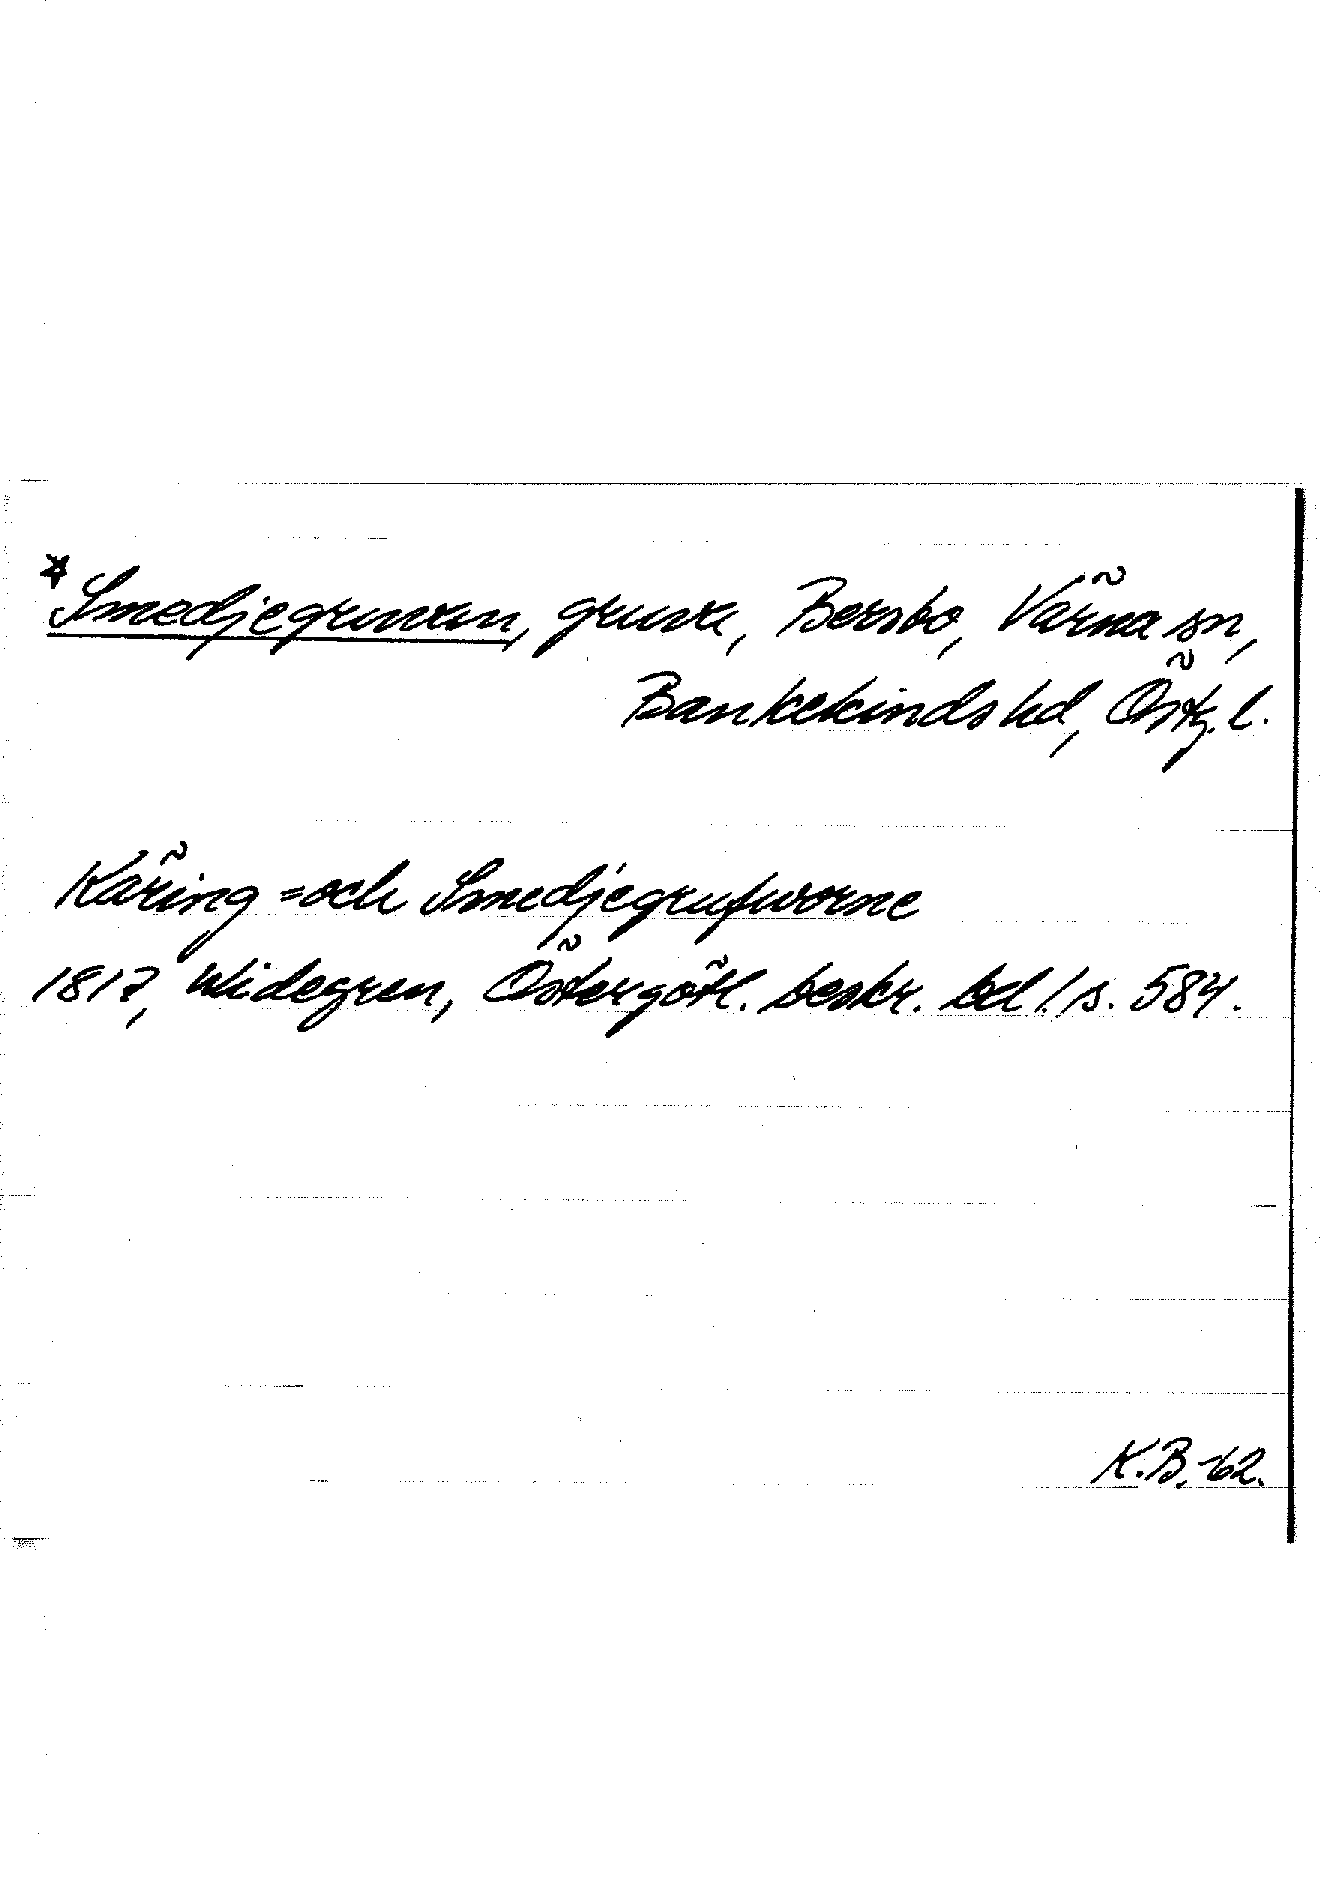 *Smedjegruvan, gruva, Bersbo, Värna sn,
Bankekinds hd, Östg. l.
Käring=och Smedjegrufworne
1817, Widegren, Östergötl. beskr. bd 1. s. 584.
K.B.-62.